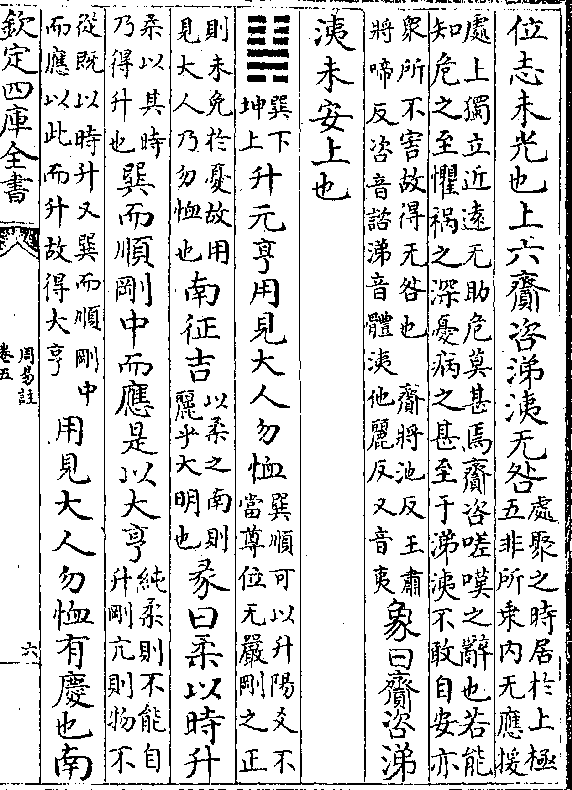 位志未光也上六齎咨涕洟无咎處聚之時居於上極五非所乗内无應援
處上獨立近遠无助危莫甚焉齎咨嗟嘆之辭也若能知危之至懼禍之深憂病之甚至于涕洟不敢自安亦
衆所不害故得无咎也 齎將池反王肅將啼反咨音諮涕音體洟他麗反又音夷象曰齎咨涕
洟未安上也
䷭巽下坤上升元亨用見大人勿恤巽順可以升陽爻不當尊位无嚴剛之正
則未免於憂故用見大人乃勿恤也南征吉以柔之南則麗乎大明也彖曰柔以時升
柔以其時乃得升也巽而順剛中而應是以大亨純柔則不能自升剛亢則物不
從既以時升又巽而順剛中而應以此而升故得大亨用見大人勿恤有慶也南
欽定四庫全書
周易註
卷五
六